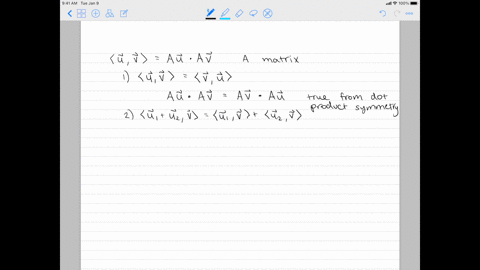 9:41 AM Tue Jan 8
⟨u⃗, v⃗⟩ = Au⃗ • Av⃗ A matrix
1) ⟨u⃗, v⃗⟩ = ⟨v⃗, u⃗⟩
Au⃗ • Av⃗ = Av⃗ • Au⃗ true from dot product symmetry
2) ⟨u⃗₁ + u⃗₂, v⃗⟩ = ⟨u⃗₁, v⃗⟩ + ⟨u⃗₂, v⃗⟩